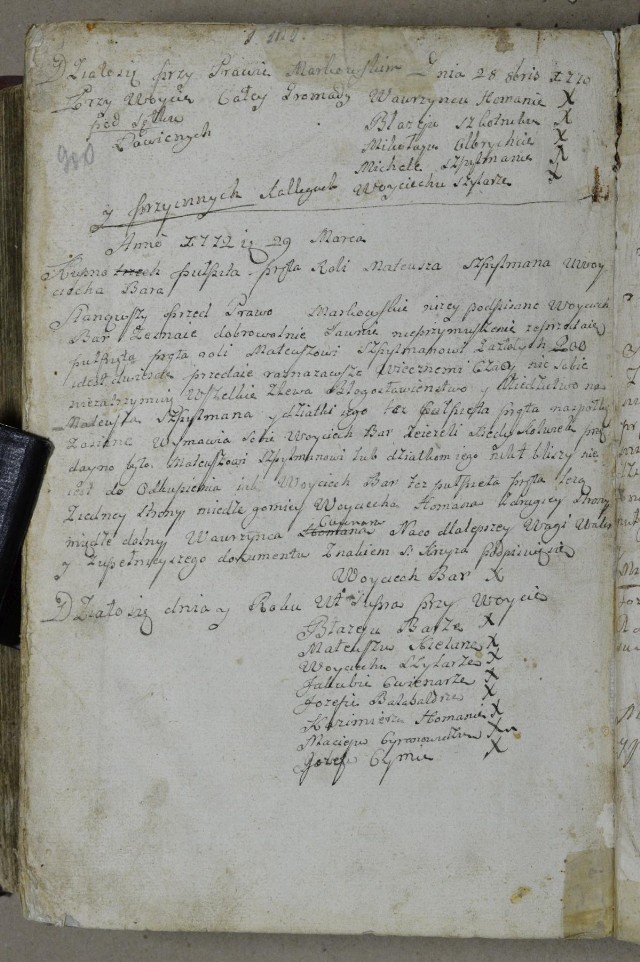 Działosię przy Prawie Markowskim Dnia 28 8bris 1770
Przy Woycie Całey Gromady Wawrzyncu Homanie X
Błażeju Szlotniku X
Ławicznych
Mikołaju Olbrychcie X
980
Michale Szpylmanie X
y przysinnych Kallegach Woyciechu Szylarze X
Anno 1772 29 Marca
Kupno trzech pułpięta pręta Roli Mateusza Szpylmana U Woy
ciecha Bara
Stanąwszy przed Prawo Markowskie niżey podpisane Woyciech
Bar Zeznaie dobrowolnie Jawnie nieprzymuszenie
pułpięta pręta roli Mateuszowi Szpylmanowi Zazłotych 200
idest dwieście przedaie Wiecznemi Czasy nic Sobie
niezatrzymuj Wszelkie Zlewa Błogosławienstwo y Dziedzictwo na
Mateusza Szpylmana y dziatki iego tez Pułpięta pręta
Zasiane Wymawia Sobie Woyciech Bar Jeżeli
dayno było Mateuszowi Szpylmanowi lub dziatkom iego nikt bliszy nie
iest do Odkupienia iak Woyciech Bar tez pułpięta pręta leżą
Ziedney Strony miedze gorney Woyciecha Homana Zdrugiey Strony
miedze dolny Wawrzynca Homana Naco dla lepszey Wagi Walor
y Zupełnieyszego dokumentu Znakiem S. Krzyza podpisuięsie
Woyciech Bar X
Działo się dnia y Roku Ut Supra przy Woycie
Błażeju Barze X
Mateuszu Kielanie X
Woyciechu Szylarze X
Jakubie Cwienarze X
Jozefie Bałabaldrze X
Kazimierzu Homanie X
Macieju X
Jozef Cymie X